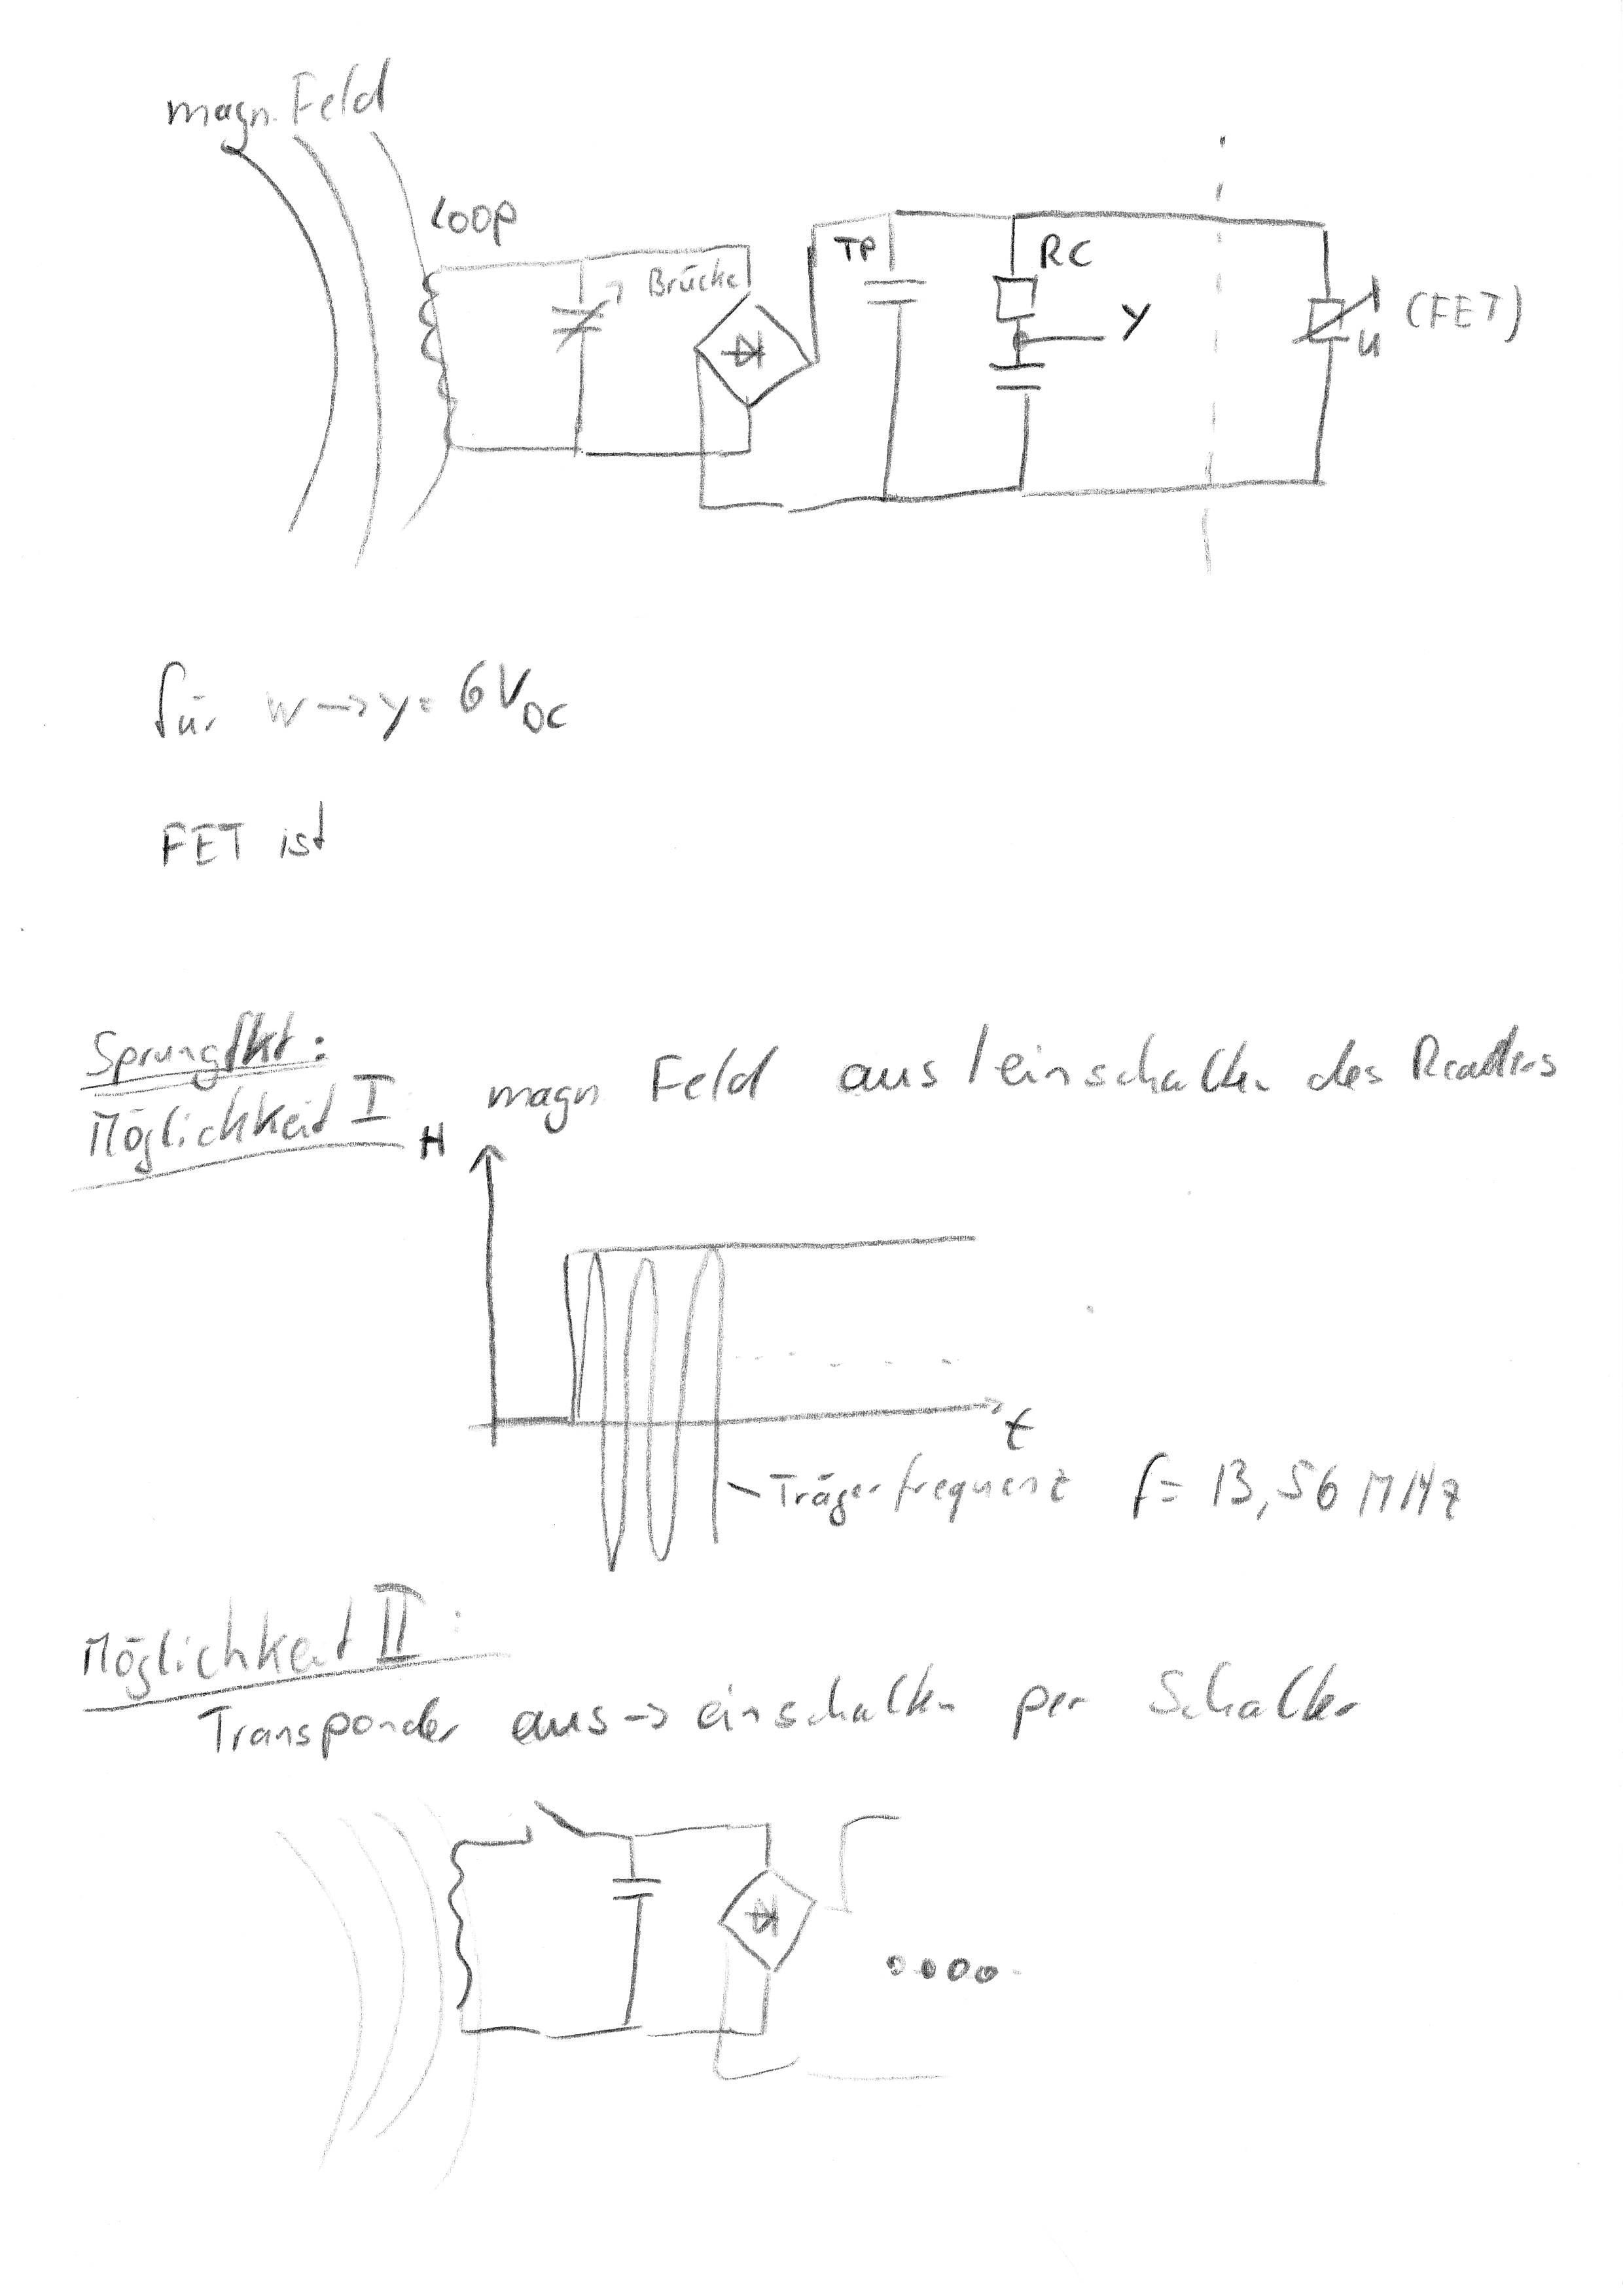 magn. Feld
Loop
Brücke
TP
RC
Y
u
(FET)
für w → y = 6 V DC
FET ist
Sprungfkt:
Möglichkeit I
magn. Feld aus / einschalten des Readers
H
t
Trägerfrequenz f = 13,56 MHz
Möglichkeit II:
Transponder aus → einschalten per Schalter